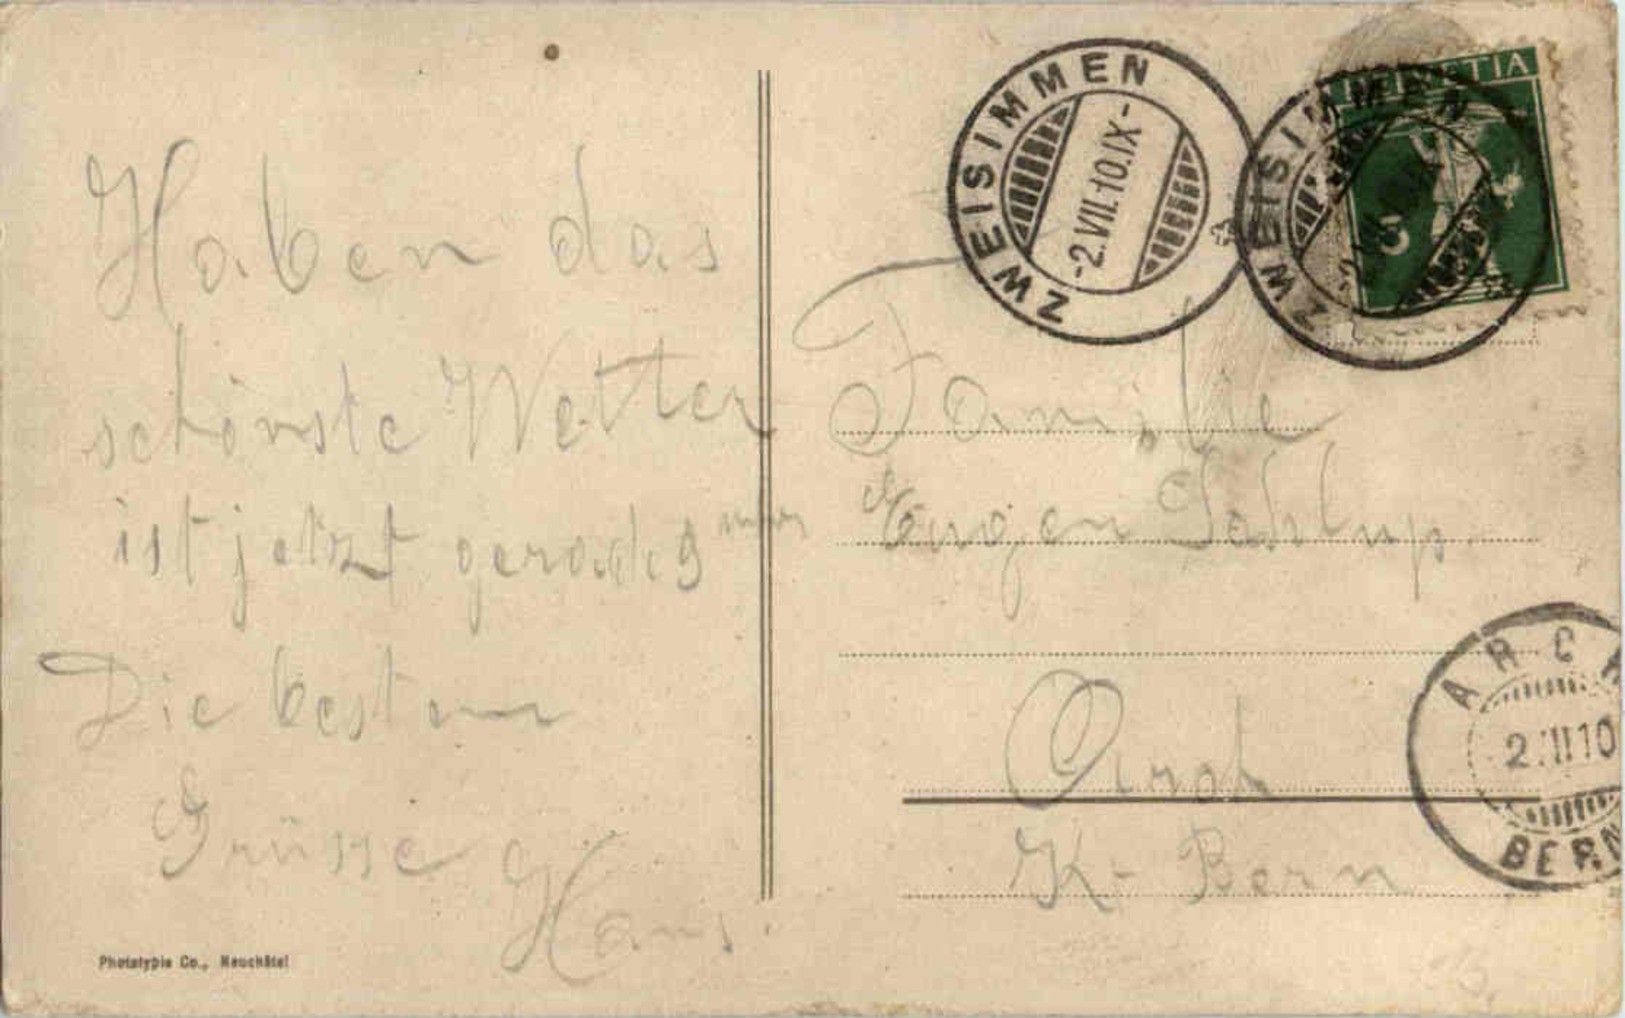 Haben das
schönste Wetter
ist jetzt gerade 9
Die besten
Grüsse
Hans.
Phototypie Co., Neuchâtel
ZWEISIMMEN
-2.VII.10.IX-
ZWEISIMMEN
HELVETIA
5
Familie
Eugen Schlup.
Arch
K- Bern
ARCH
2.VII.10
BERN